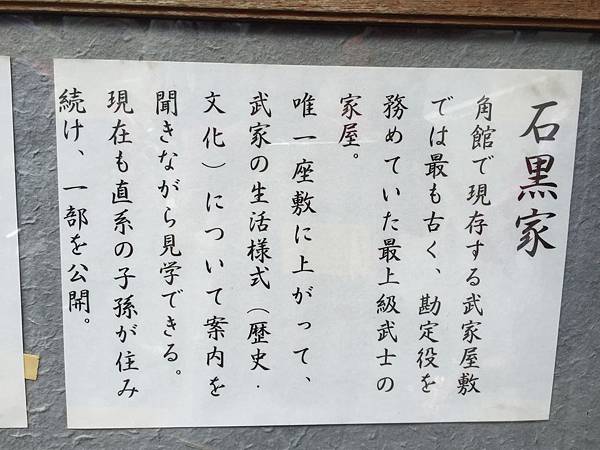 石黒家
角館で現存する武家屋敷
では最も古く、勘定役を
務めていた最上級武士の
家屋。
唯一座敷に上がって、
武家の生活様式（歴史・
文化）について案内を
聞きながら見学できる。
現在も直系の子孫が住み
続け、一部を公開。